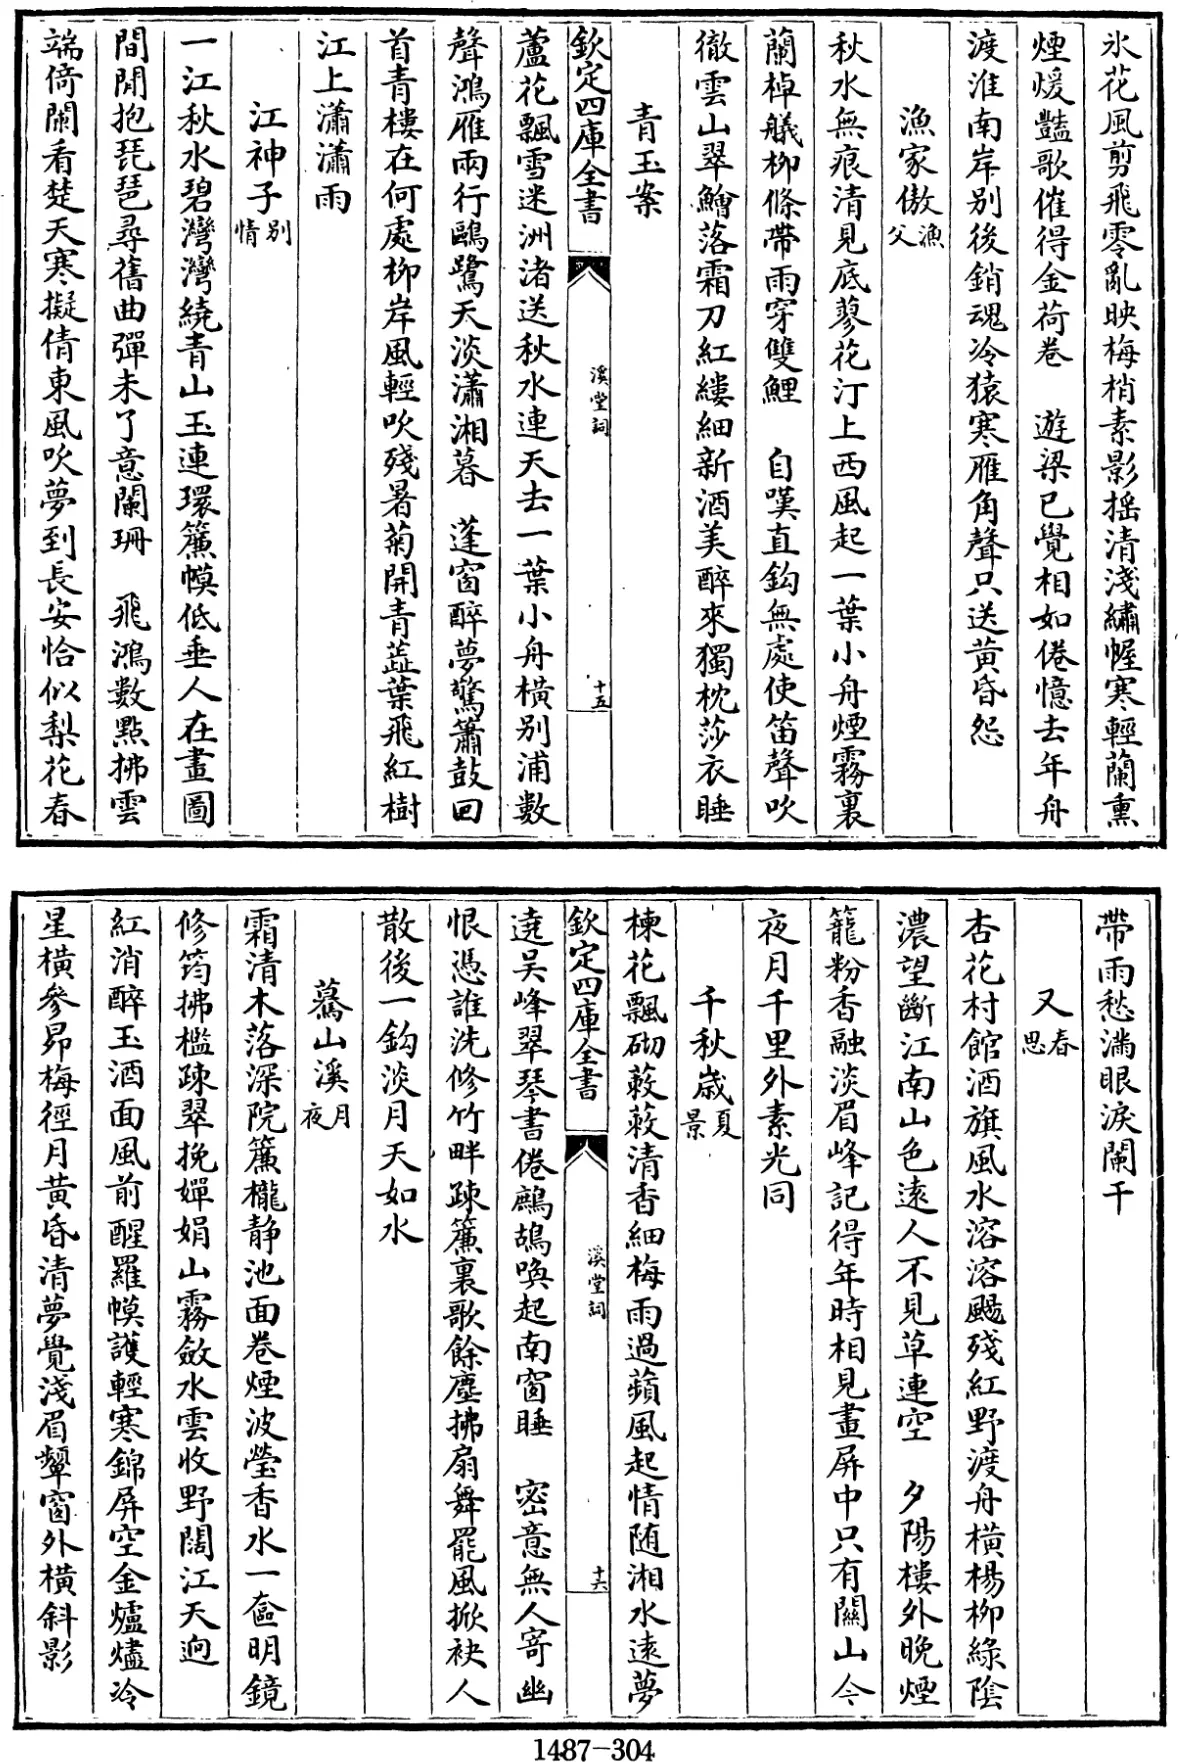 氷花風剪飛零亂映梅梢素影摇清淺繡幄寒輕蘭熏
煙煖豔歌催得金荷卷　遊梁已覺相如倦憶去年舟
渡淮南岸别後銷魂冷猿寒雁角聲只送黄昏怨
漁家傲漁父
秋水無痕清見底蓼花汀上西風起一葉小舟煙霧裏
蘭棹艤柳條帶雨穿雙鯉　自嘆直鈎無處使笛聲吹
徹雲山翠鱠落霜刀紅縷細新酒美醉來獨枕莎衣睡
青玉案
欽定四庫全書　溪堂詞　十五
蘆花飄雪迷洲渚送秋水連天去一葉小舟横别浦數
聲鴻雁兩行鷗鷺天淡瀟湘暮　蓬窗醉夢驚簫鼓回
首青樓在何處柳岸風輕吹殘暑菊開青蘂葉飛紅樹
江上瀟瀟雨
江神子别情
一江秋水碧灣灣繞青山玉連環簾幙低垂人在畫圖
間閒抱琵琶尋舊曲彈未了意闌珊　飛鴻數點拂雲
端倚闌看楚天寒擬倩東風吹夢到長安恰似梨花春
帶雨愁滿眼淚闌干
又春思
杏花村館酒旗風水溶溶颺殘紅野渡舟横楊柳緑陰
濃望斷江南山色遠人不見草連空　夕陽樓外晚煙
籠粉香融淡眉峰記得年時相見畫屏中只有關山今
夜月千里外素光同
千秋歲夏景
楝花飄砌蔌蔌清香細梅雨過蘋風起情随湘水遠夢
遶吳峰翠琴書倦鷓鴣喚起南窗睡　密意無人寄幽
恨憑誰洗修竹畔疎簾裏歌餘塵拂扇舞罷風掀袂人
散後一鈎淡月天如水
驀山溪月夜
霜清木落深院簾櫳静池面卷煙波瑩香水一奩明鏡
修筠拂檻疎翠挽嬋娟山霧斂水雲收野闊江天迥
紅消醉玉酒面風前醒羅幙護輕寒錦屏空金爐燼冷
星横參昴梅徑月黄昏清夢覺淺眉顰窗外横斜影
1487-304